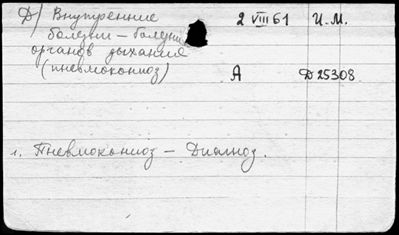 Д) Внутренние 2 VIII 61 И.М.
болезни – болезни
органов дыхания
(пневмокониоз) А Д 25308.
1. Пневмокониоз – Диагноз.